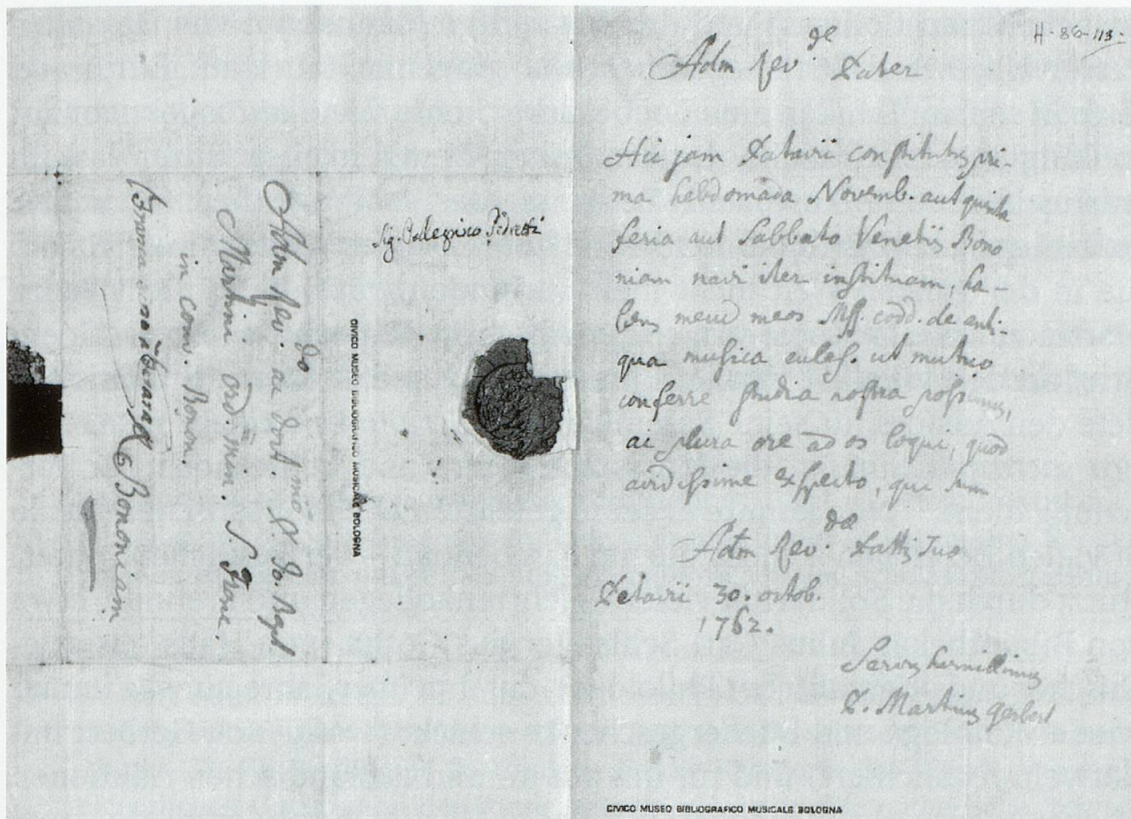 H-86-113-
Adm Rev de Pater
Hic jam Patavii constitutus pri-
ma hebdomada Novemb. aut quinta
feria aut Sabbato Venetiis Bono
niam navi iter instituam, ha-
bens mecum meos Mss. codd. de anti-
qua musica eccles. ut mutuo
conferre studia nostra possimus,
ac plura ore ad os loqui, quod
avidissime expecto, qui sum
Adm Rev. dae Pattis Tuae
Patavii 30. octob.
1762.
Servus humillimus
P. Martinus Gerbert
CIVICO MUSEO BIBLIOGRAFICO MUSICALE BOLOGNA
Sig. Pellegrino
CIVICO MUSEO BIBLIOGRAFICO MUSICALE BOLOGNA
Adm Rev. do ac doct. mo P. Jo. Bapt
Martini ord. min. S. Franc.
in conv. Bonon.
Bononiam